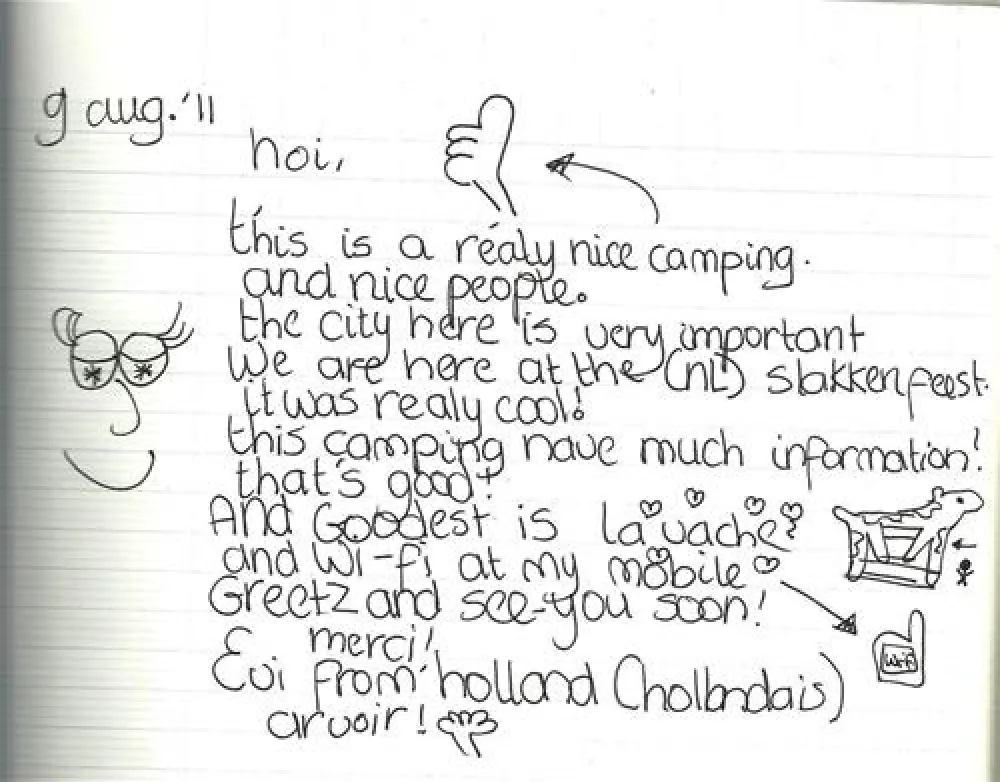 9 aug.'11
hoi,
this is a realy nice camping.
and nice people.
the city here is very important
We are here at the (NL) slakkenfeest.
it was realy cool!
this camping have much information!
that's good!
And Goodest is la vache
and Wi-fi at my mobile
Greetz and see-you soon!
merci!
Evi from holland (hollandais)
arvoir!
Wi-fi